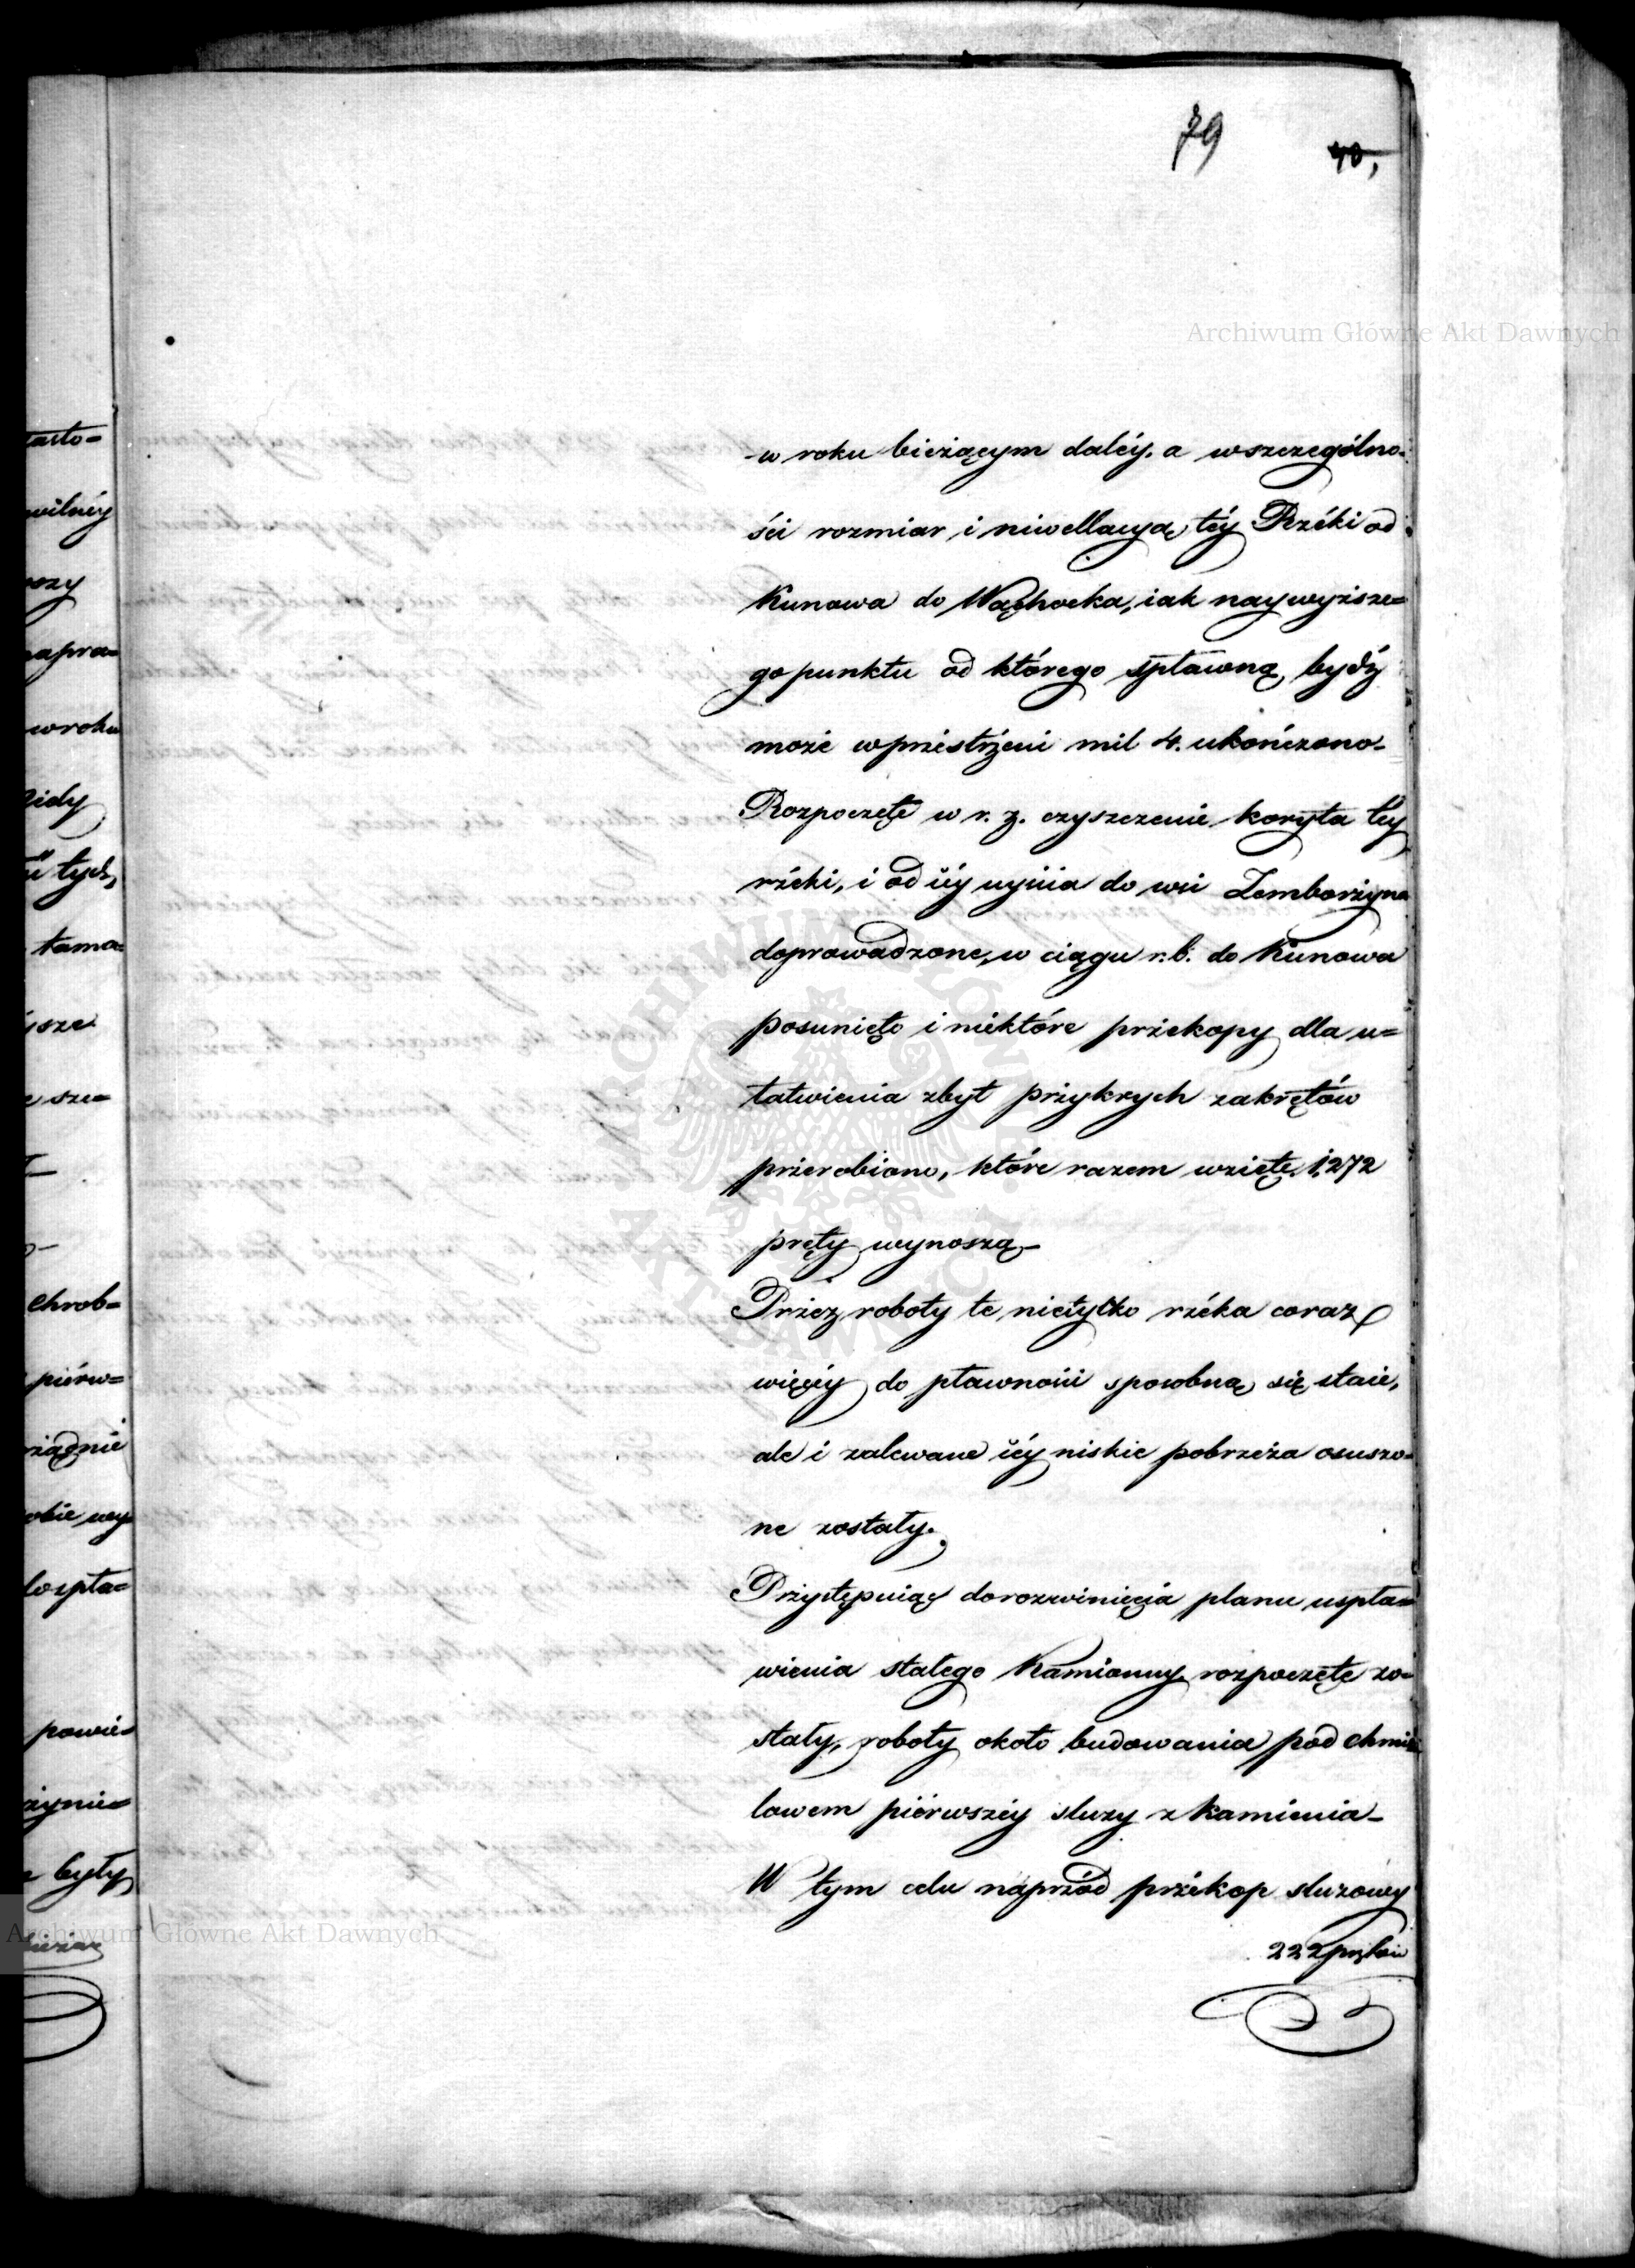 79
40,
Archiwum Główne Akt Dawnych
w roku bieżącym daléy. a wszczególno-
ści rozmiar i niwellacyą téy Rzéki od
Kunowa do Wąchocka, iak naywyższe=
go punktu od którego spławną bydź
może wprzestrzeni mil 4. ukończono-
Rozpoczęte w r. z. czyszczenie koryta téy
rzéki, i od iéy uyścia do wsi Zemborzyna
doprowadzone, w ciągu r. b. do Kunowa
posunięto i niektóre przekopy dla u=
łatwienia zbyt przykrych zakrętów
przerobiono, które razem wzięte 1,272
pręty wynoszą-
Przez roboty te nietylko rzéka coraz
więcéy do pławności sposobną się staie,
ale i zalewane iéy niskie pobrzeża osuszo-
ne zostały.
Przystępuiąc do rozwinięcia planu uspła=
wienia stałego Kamionny rozpoczęte zo=
stały, roboty około budowania pod Chmie
lowem piérwszéy sluzy z kamienia-
W tym celu naprzód przekop sluzowy
222 prętów
tasto=
wilnéy
apra=
w roku
Nidy
tych,
tama=
sze
Chrob=
piérw=
obie wy
do spła=
powie=
były
Archiwum Główne Akt Dawnych
ARCHIWUM GŁÓWNE
AKT DAWNYCH